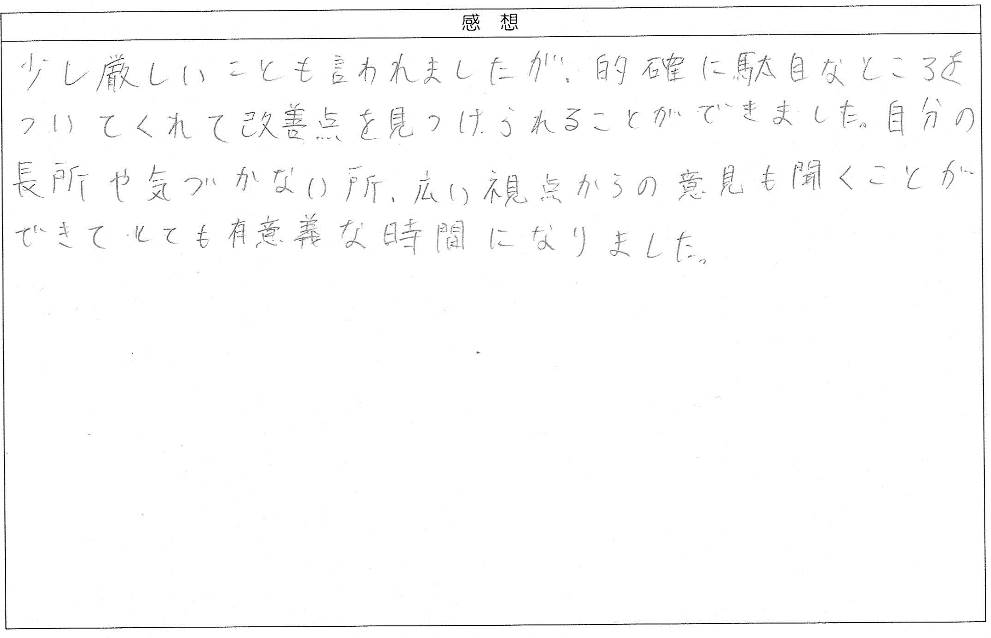 感想
少し厳しいことも言われましたが、的確に駄目なところを
ついてくれて改善点を見つけられることができました。自分の
長所や気づかない所、広い視点からの意見も聞くことが
できてとても有意義な時間になりました。